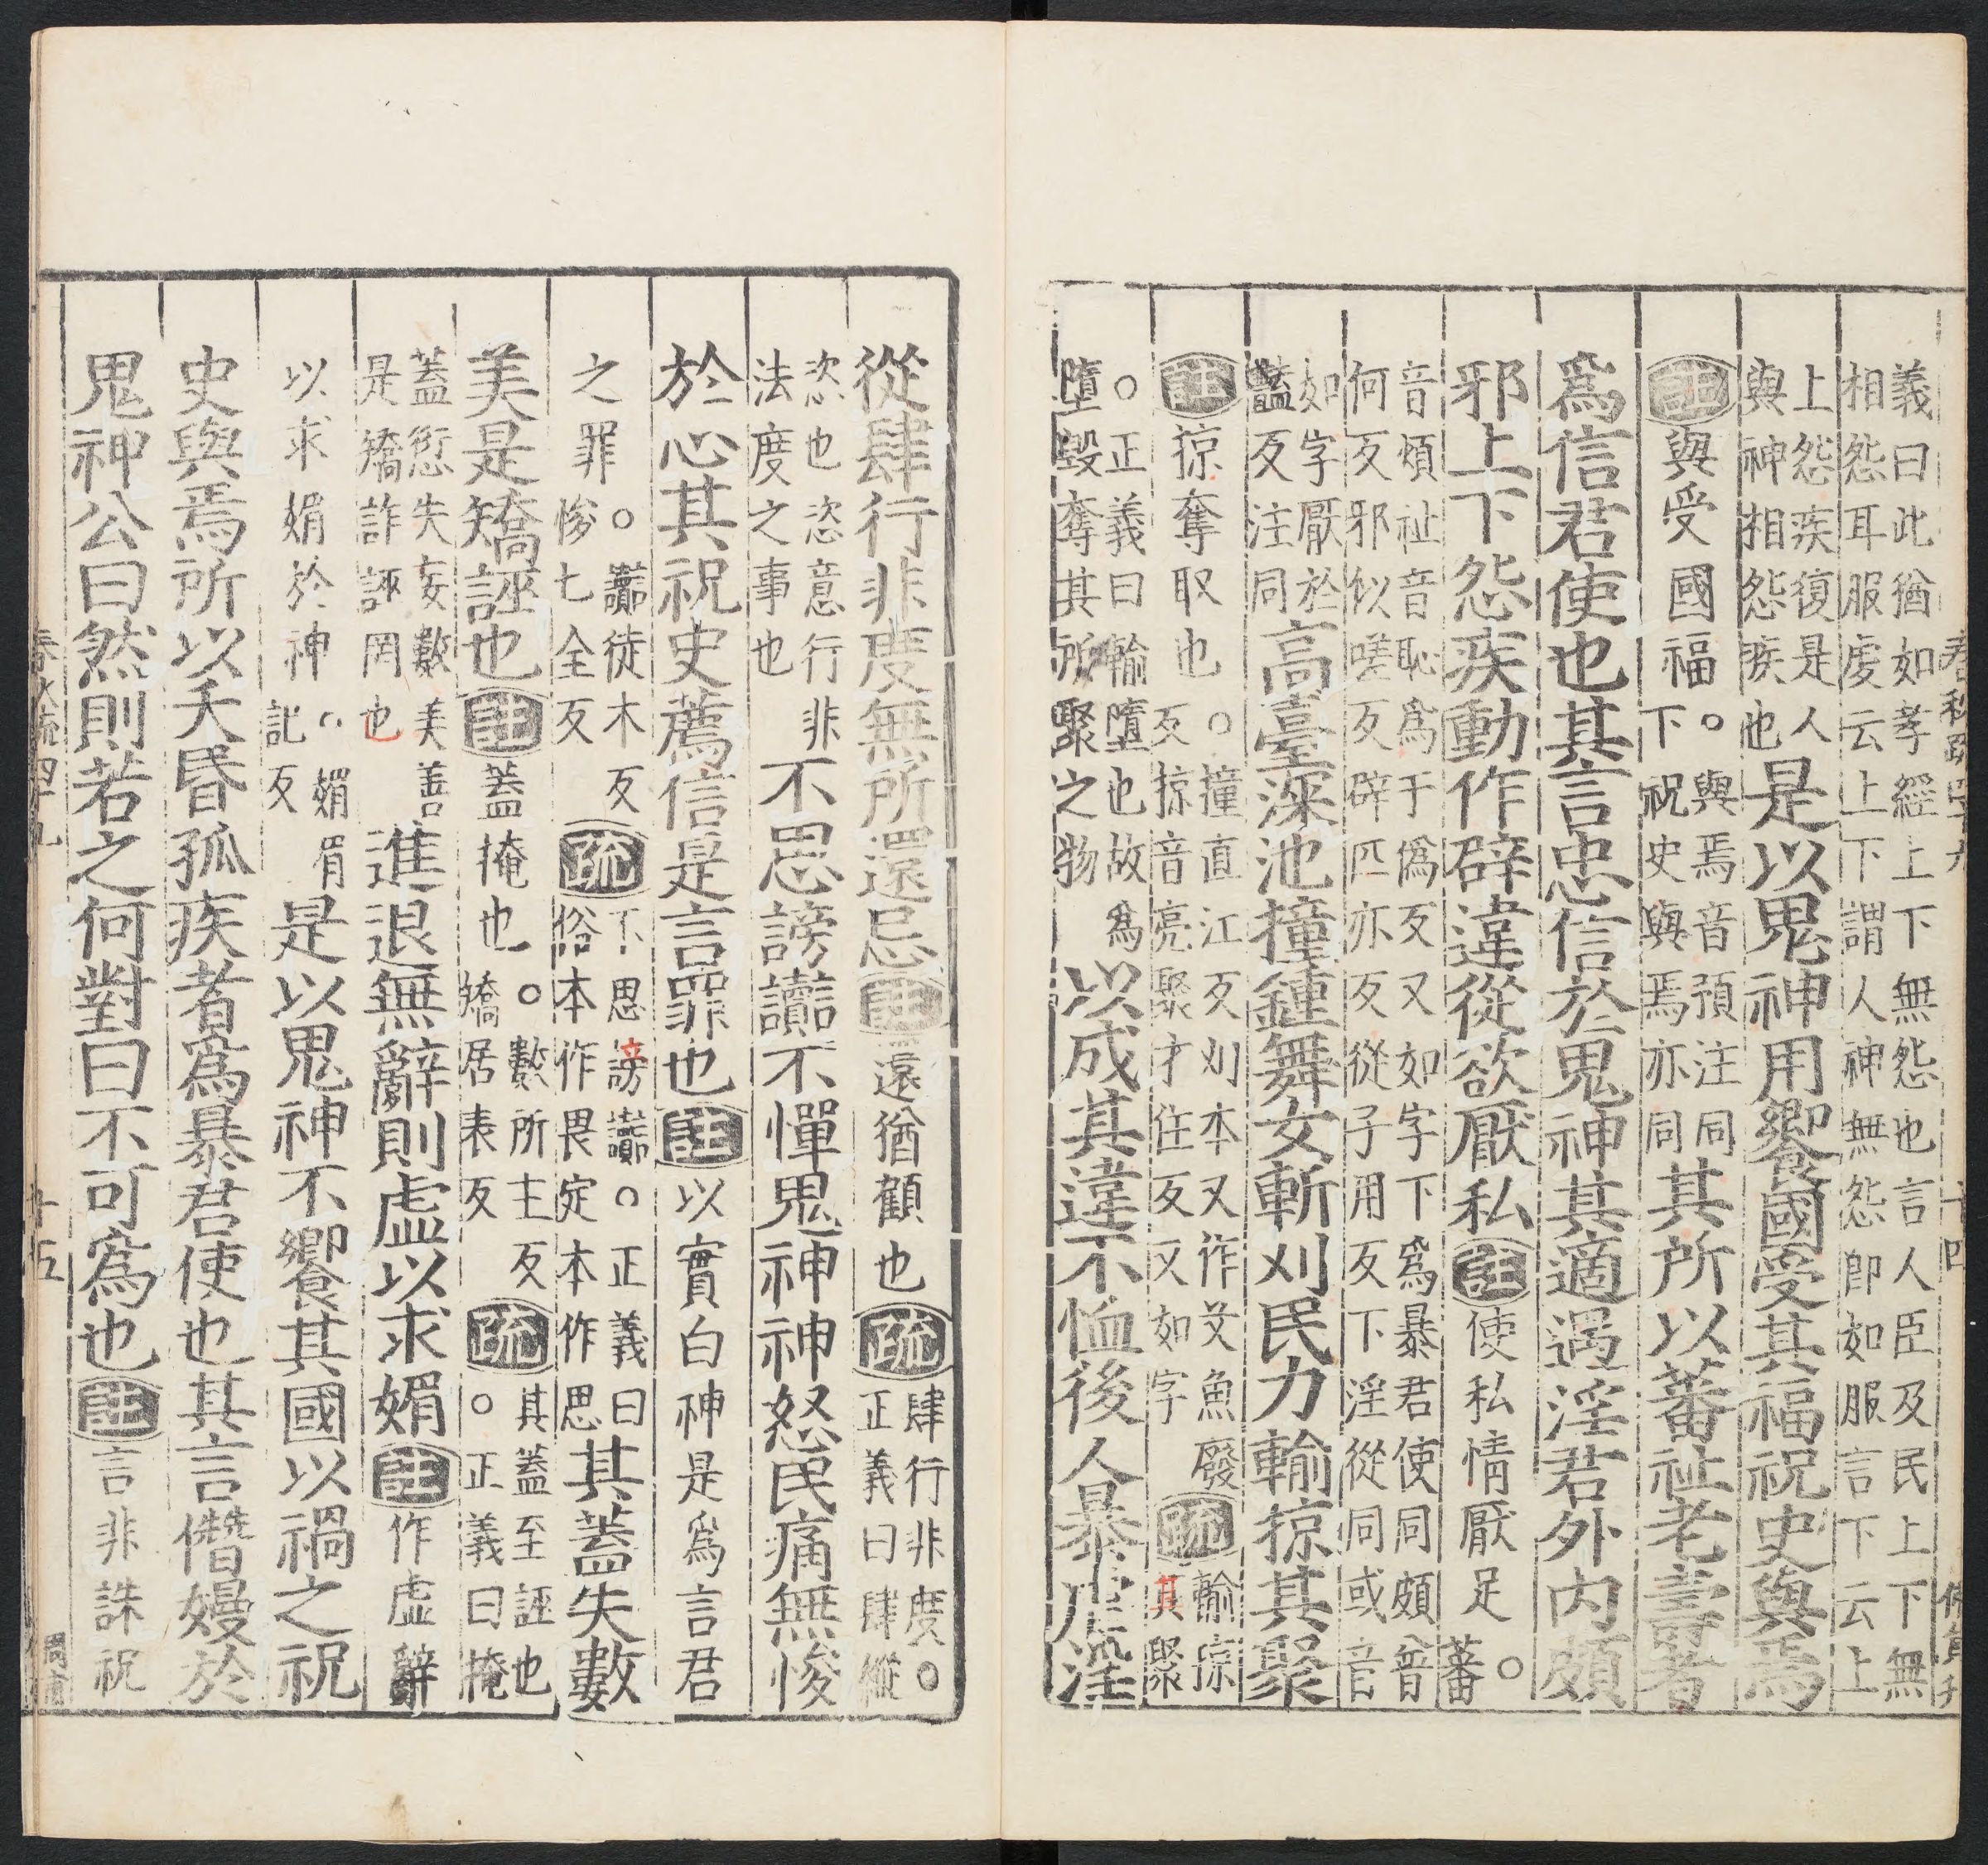 義曰此猶如孝經上下無怨也言人臣及民上下無
相怨耳服虔云上下謂人神無怨卽如服言下云上
上怨疾復是人
與神相怨疾也
是以鬼神用饗國受其福祝史與焉
註與受國福○
與焉音預注同
下祝史與焉亦同
其所以蕃祉老壽者
爲信君使也其言忠信於鬼神其適遇淫君外內頗
邪上下怨疾動作辟違從欲厭私註使私情厭足○
蕃
音煩祉音恥爲于僞反又如字下爲暴君使同頗普
何反邪似嗟反辟匹亦反從子用反下淫從同或音
如字厭於
豔反注同
高臺深池撞鍾舞女斬刈民力輸掠其聚
註掠奪取也○
撞直江反刈本又作艾魚廢
反掠音亮聚才住反又如字
疏
輸掠
其聚
○正義曰輸墮也故爲
墮毀奪其所聚之物
以成其違不恤後人暴虐淫
春秋疏四十九
十四
從肆行非度無所還忌註還猶顧也疏
肆行非度○
正義曰肆縱
恣也恣意行非
法度之事也
不思謗讟不憚鬼神神怒民痛無悛
於心其祝史薦信是言罪也註以實白神是爲言君
之罪○
讟徒木反
悛七全反
疏
不思謗讟○正義曰
俗本作畏定本作思
其蓋失數
美是矯誣也註蓋掩也○
數所主反
矯居表反
疏
其蓋至誣也
○正義曰掩
蓋愆失妄數美善
是矯詐誣罔也
進退無辭則虛以求媚註作虛辭
以求媚於神○
媚眉
記反
是以鬼神不饗其國以禍之祝
史與焉所以夭昬孤疾者爲暴君使也其言僭嫚於
鬼神公曰然則若之何對曰不可爲也註言非誅祝
春秋疏四十九
十五